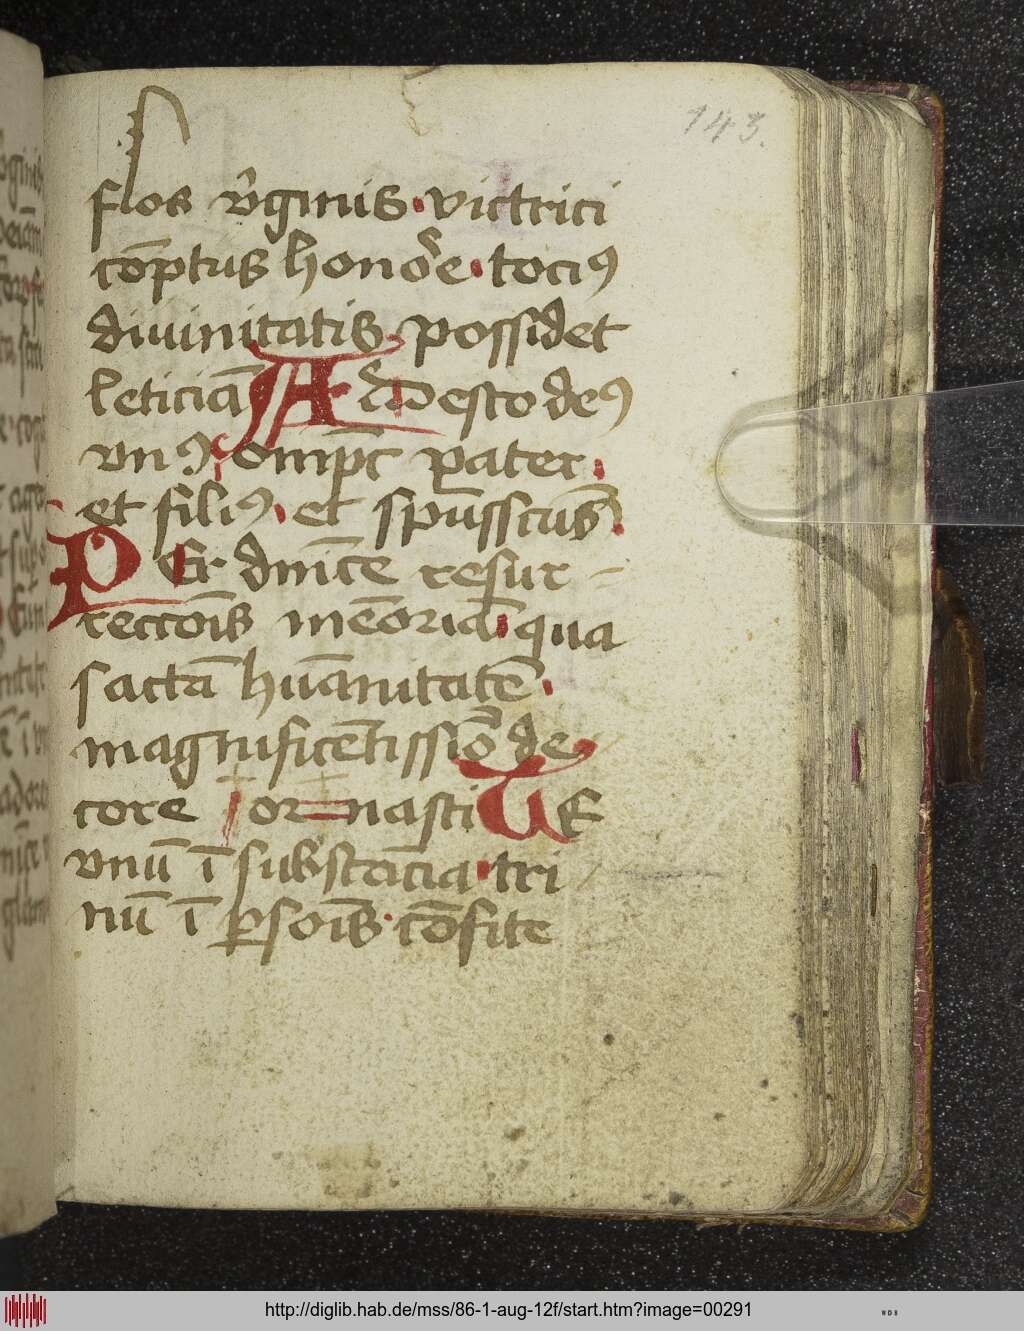 143.
flos v̓ginis · victrici
co̅ptus hono̓e · tociꝰ
diuinitatis · possidet
leticia̅ A d̓ D esto deꝰ
vnꝰ omip̅c pater ·
et filiꝰ · et sp̅ussctus̅ ·
P Er dni̅ce resur-
reccoi̅s me̅oria̅ · qua
sacta̅ hu̅anitate̅ ·
magnifice̅tissio̅ de
core ornasti T E
vnu̅ i̅ substa̅cia · tri
nu̅ i̅ ꝑsoi̅s · co̅fite
http://diglib.hab.de/mss/86-1-aug-12f/start.htm?image=00291